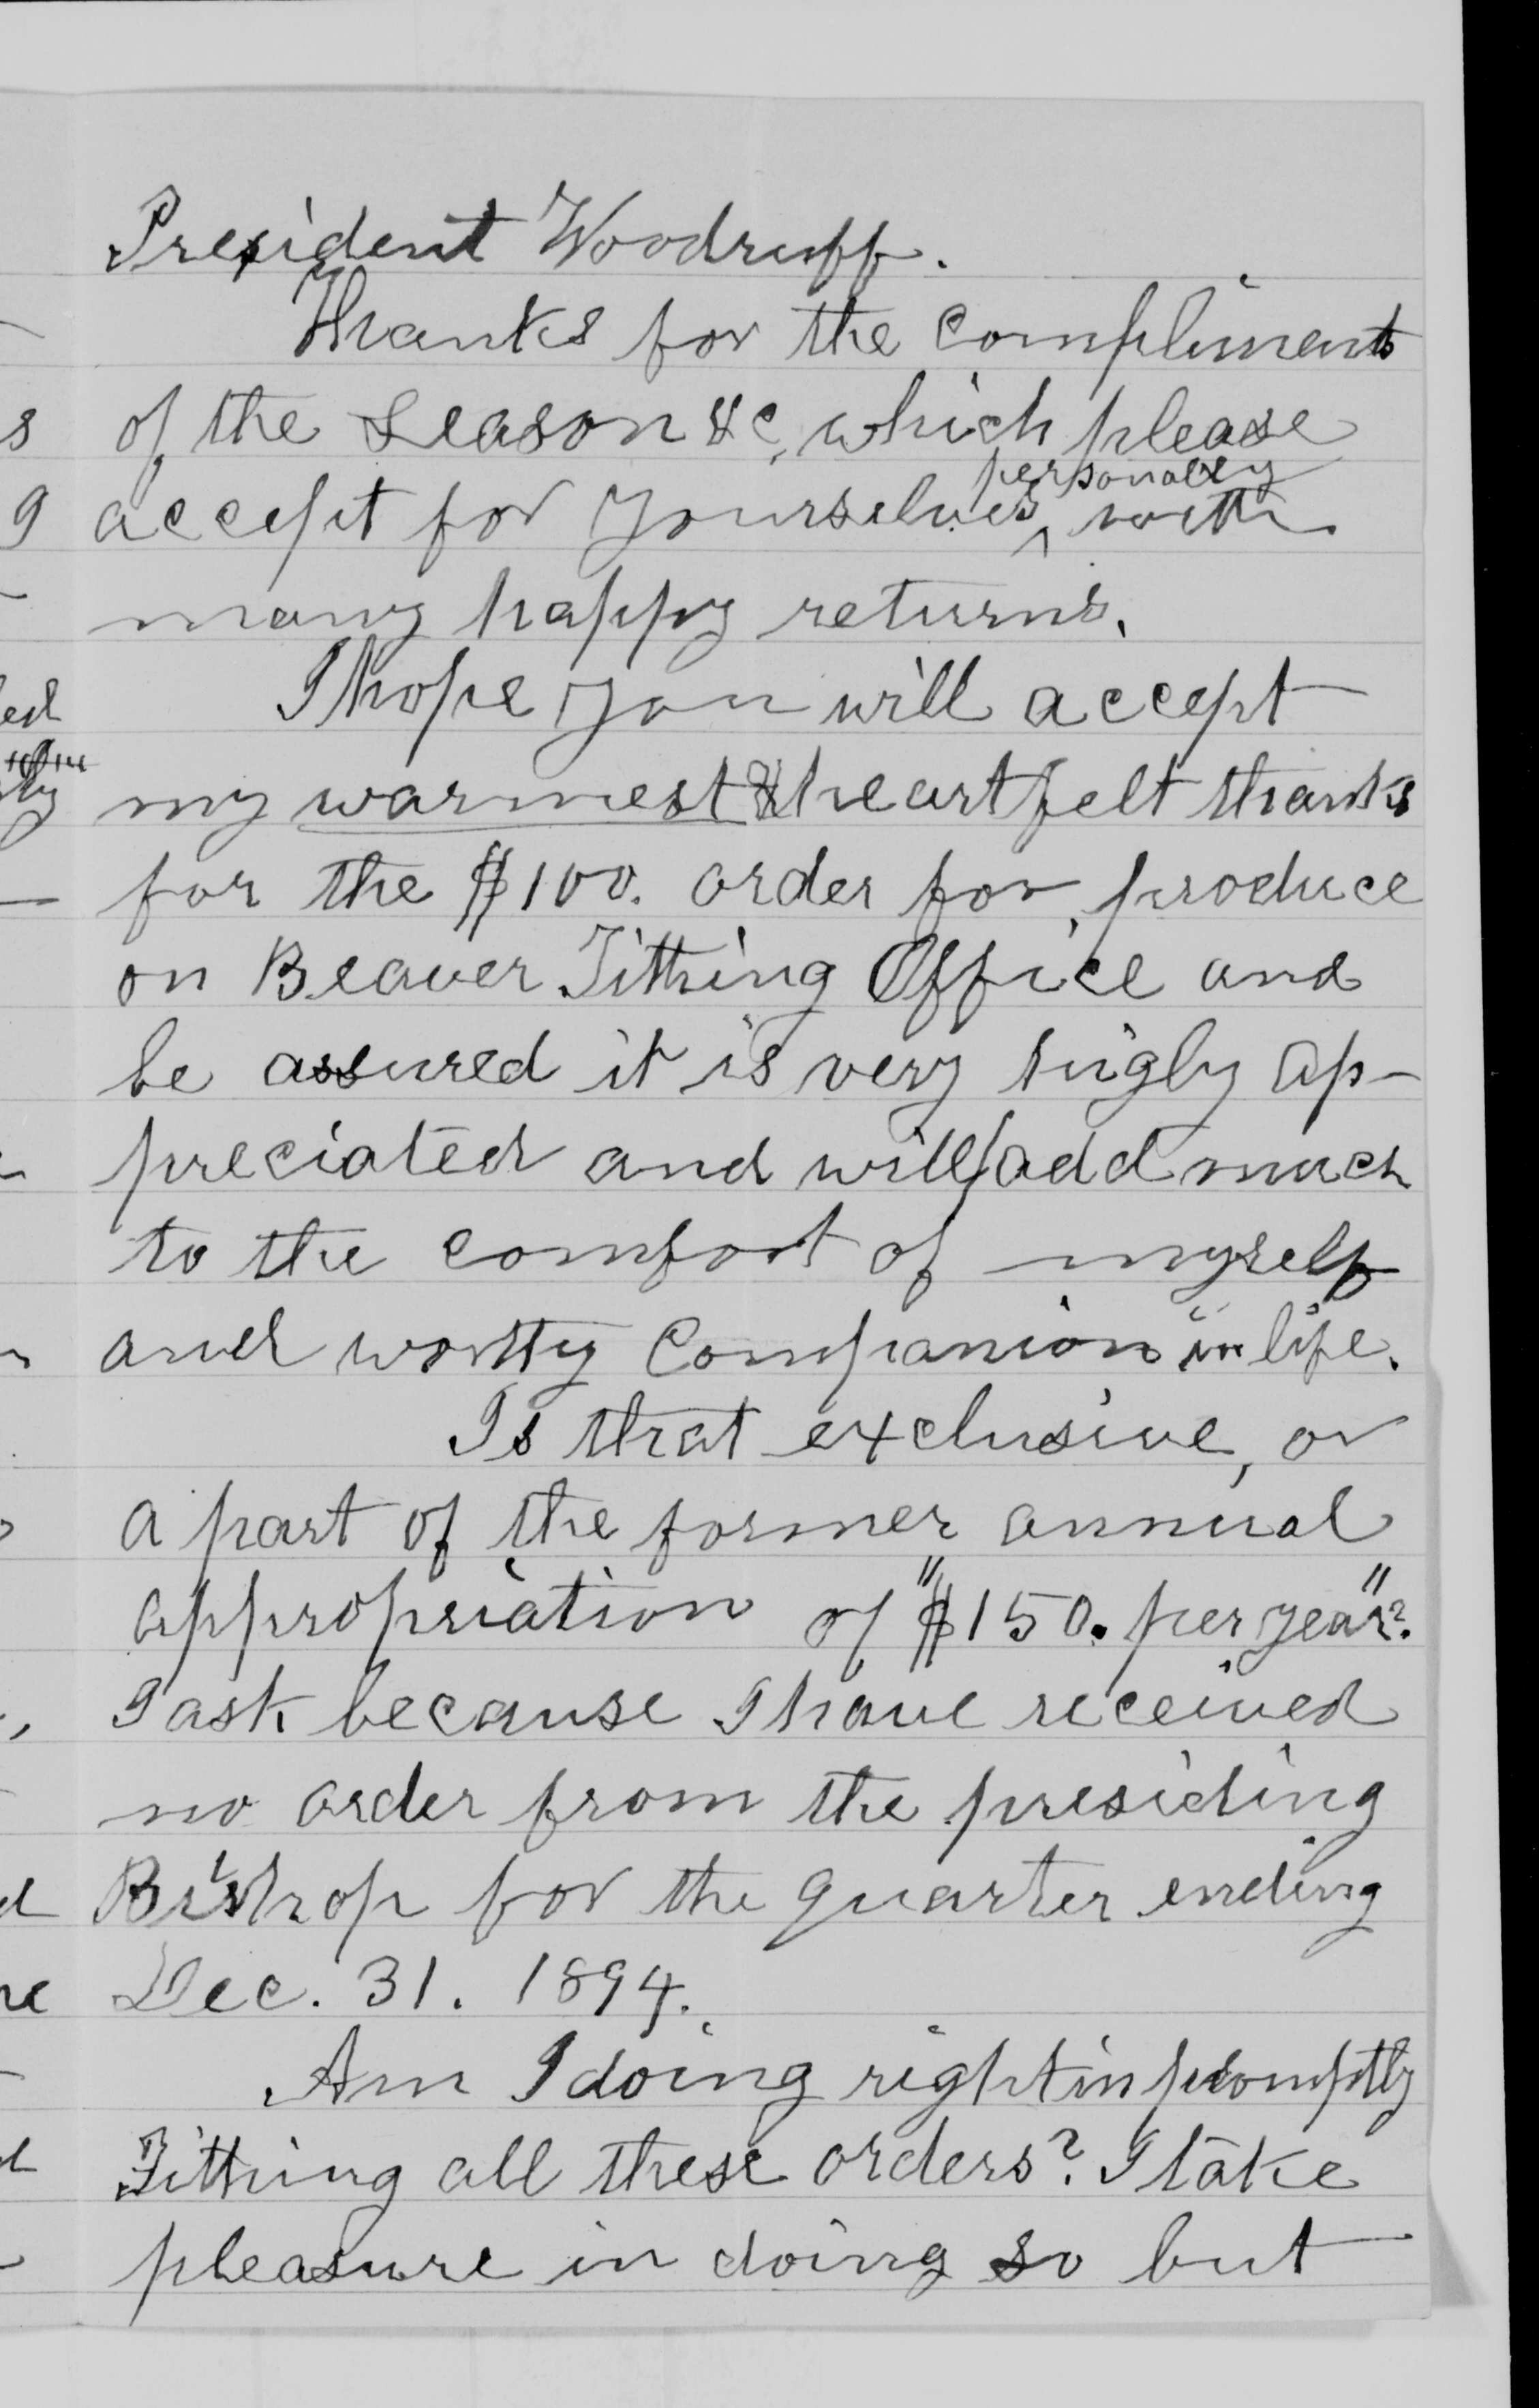 President Woodruff.
Thanks for the compliments
of the Season &c, which please
accept for yourselves ^personally with
many happy returns.
I hope you will accept
my warmest & heartfelt thanks
for the $100. order for produce
on Beaver Tithing Office and
be assured it is very higly ap-
preciated and will add much
to the comfort of myself
and worthy Companion in life.
Is that exclusive, or
a part of the former annual
appropriation of "$150. per year"?
I ask because I have received
no order from the presiding
Bishop for the quarter ending
Dec. 31. 1894.
Am I doing right in promptly
Tithing all these orders? I take
pleasure in doing so but